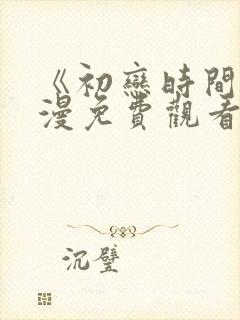 《初戀時間
漫免費觀看
沉璧